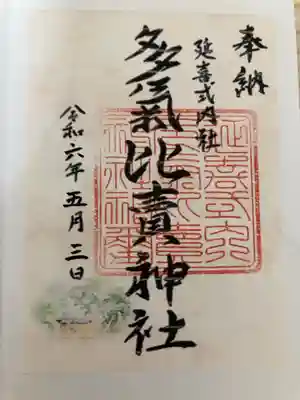 奉納
延喜式内社
多氣比賣神社
令和六年五月三日